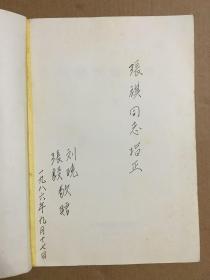 张祺同志指正
刘晓
張毅敬赠
一九八六年九月十七日